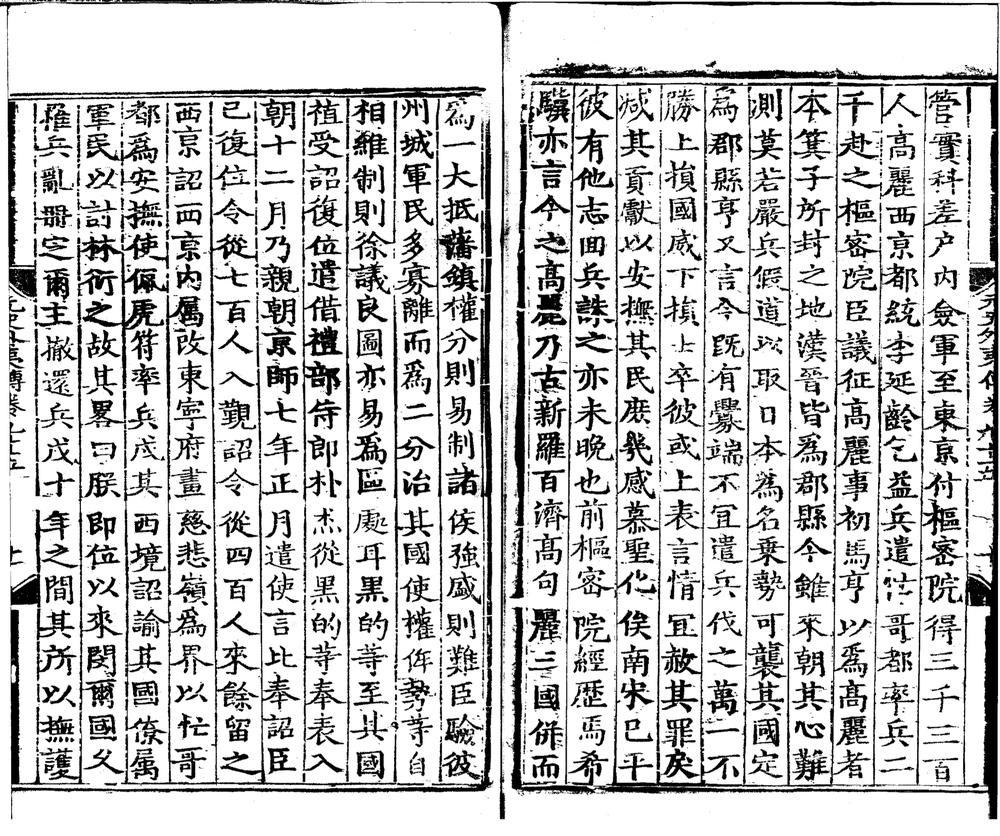 管實科差户內僉軍至東京付樞密院得三千三百
人高麗西京都統李延齡乞益兵遣忙哥都率兵二
千赴之樞密院臣議征高麗事初馬亨以爲高麗者
本箕子所封之地漢晉皆爲郡縣今雖來朝其心難
測莫若嚴兵假道以取日本爲名乗勢可襲其國定
爲郡縣亨又言今既有釁端不宜遣兵伐之萬一不
勝上損國威下損士卒彼或上表言情宜赦其罪戾
减其貢獻以安撫其民庶幾感慕聖化俟南宋已平
彼有他志回兵誅之亦未晩也前樞密院經歷馬希
驥亦言今之高麗乃古新羅百濟高句麗三國併而
元史外夷傳卷九十五
爲一大抵藩鎮權分則易制諸侯強盛則難臣驗彼
州城軍民多寡離而爲二分治其國使權侔勢等自
相維制則徐議良圖亦易爲區處耳黑的等至其國
植受詔復位遣借禮部侍郎朴杰從黑的等奉表入
朝十二月乃親朝京師七年正月遣使言比奉詔臣
已復位令從七百人入覲詔令從四百人來餘留之
西京詔西京内属改東寧府畫慈悲嶺爲界以忙哥
都爲安撫使佩虎符率兵戍其西境詔諭其國僚属
軍民以討林衍之故其畧曰朕即位以來閔爾國父
罹兵亂冊定爾主撤還兵戍十年之間其所以撫護